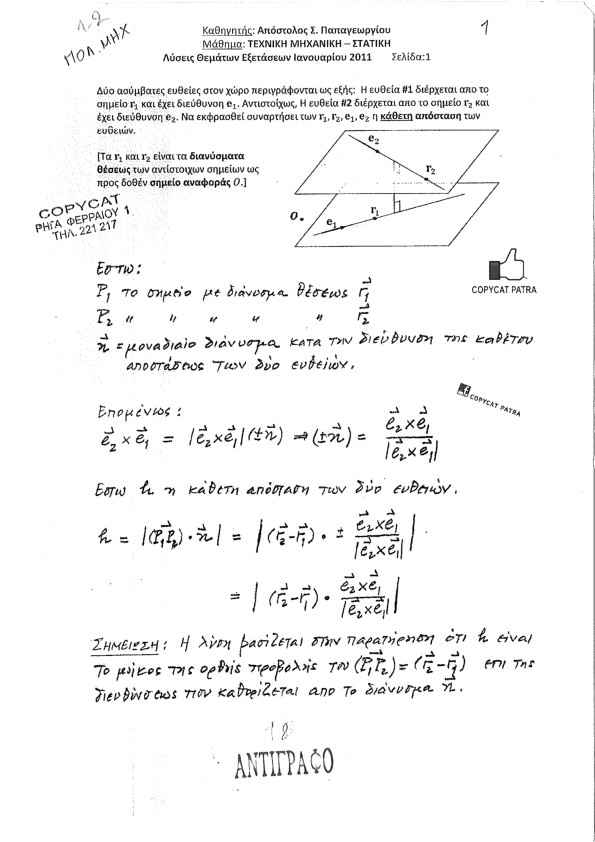 1.2
ΠΟΛ. ΜΗΧ
1
Καθηγητής: Απόστολος Σ. Παπαγεωργίου
Μάθημα: ΤΕΧΝΙΚΗ ΜΗΧΑΝΙΚΗ – ΣΤΑΤΙΚΗ
Λύσεις Θεμάτων Εξετάσεων Ιανουαρίου 2011 Σελίδα:1
Δύο ασύμβατες ευθείες στον χώρο περιγράφονται ως εξής: Η ευθεία #1 διέρχεται απο το
σημείο r₁ και έχει διεύθυνση e₁. Αντιστοίχως, Η ευθεία #2 διέρχεται απο το σημείο r₂ και
έχει διεύθυνση e₂. Να εκφρασθεί συναρτήσει των r₁, r₂, e₁, e₂ η κάθετη απόσταση των
ευθειών.
[Τα r₁ και r₂ είναι τα διανύσματα
θέσεως των αντίστοιχων σημείων ως
προς δοθέν σημείο αναφοράς O.]
e₂
r₂
O
e₁
r₁
COPYCAT
ΡΗΓΑ ΦΕΡΡΑΙΟΥ 1
ΤΗΛ. 221 217
COPYCAT PATRA
Εστω:
P₁ το σημείο με διάνυσμα θέσεως r⃗₁
P₂ " " " " " r⃗₂
n⃗ = μοναδιαίο διάνυσμα κατα την διεύθυνση της καθέτου
αποστάσεως των δύο ευθειών.
COPYCAT PATRA
Επομένως:
e⃗₂ × e⃗₁ = |e⃗₂ × e⃗₁| (±n⃗) ⇒ (±n⃗) = e⃗₂ × e⃗₁ / |e⃗₂ × e⃗₁|
Εστω h η κάθετη απόσταση των δύο ευθειών.
h = |(P₁P₂)⃗ · n⃗| = | (r⃗₂ - r⃗₁) · ± e⃗₂ × e⃗₁ / |e⃗₂ × e⃗₁| |
= | (r⃗₂ - r⃗₁) · e⃗₂ × e⃗₁ / |e⃗₂ × e⃗₁| |
ΣΗΜΕΙΩΣΗ: Η λύση βασίζεται στην παρατήρηση ότι h είναι
το μήκος της ορθής προβολής του (P₁P₂)⃗ = (r⃗₂ - r⃗₁) επι της
διευθύνσεως που καθορίζεται απο το διάνυσμα n⃗.
18
ΑΝΤΙΓΡΑΦΟ